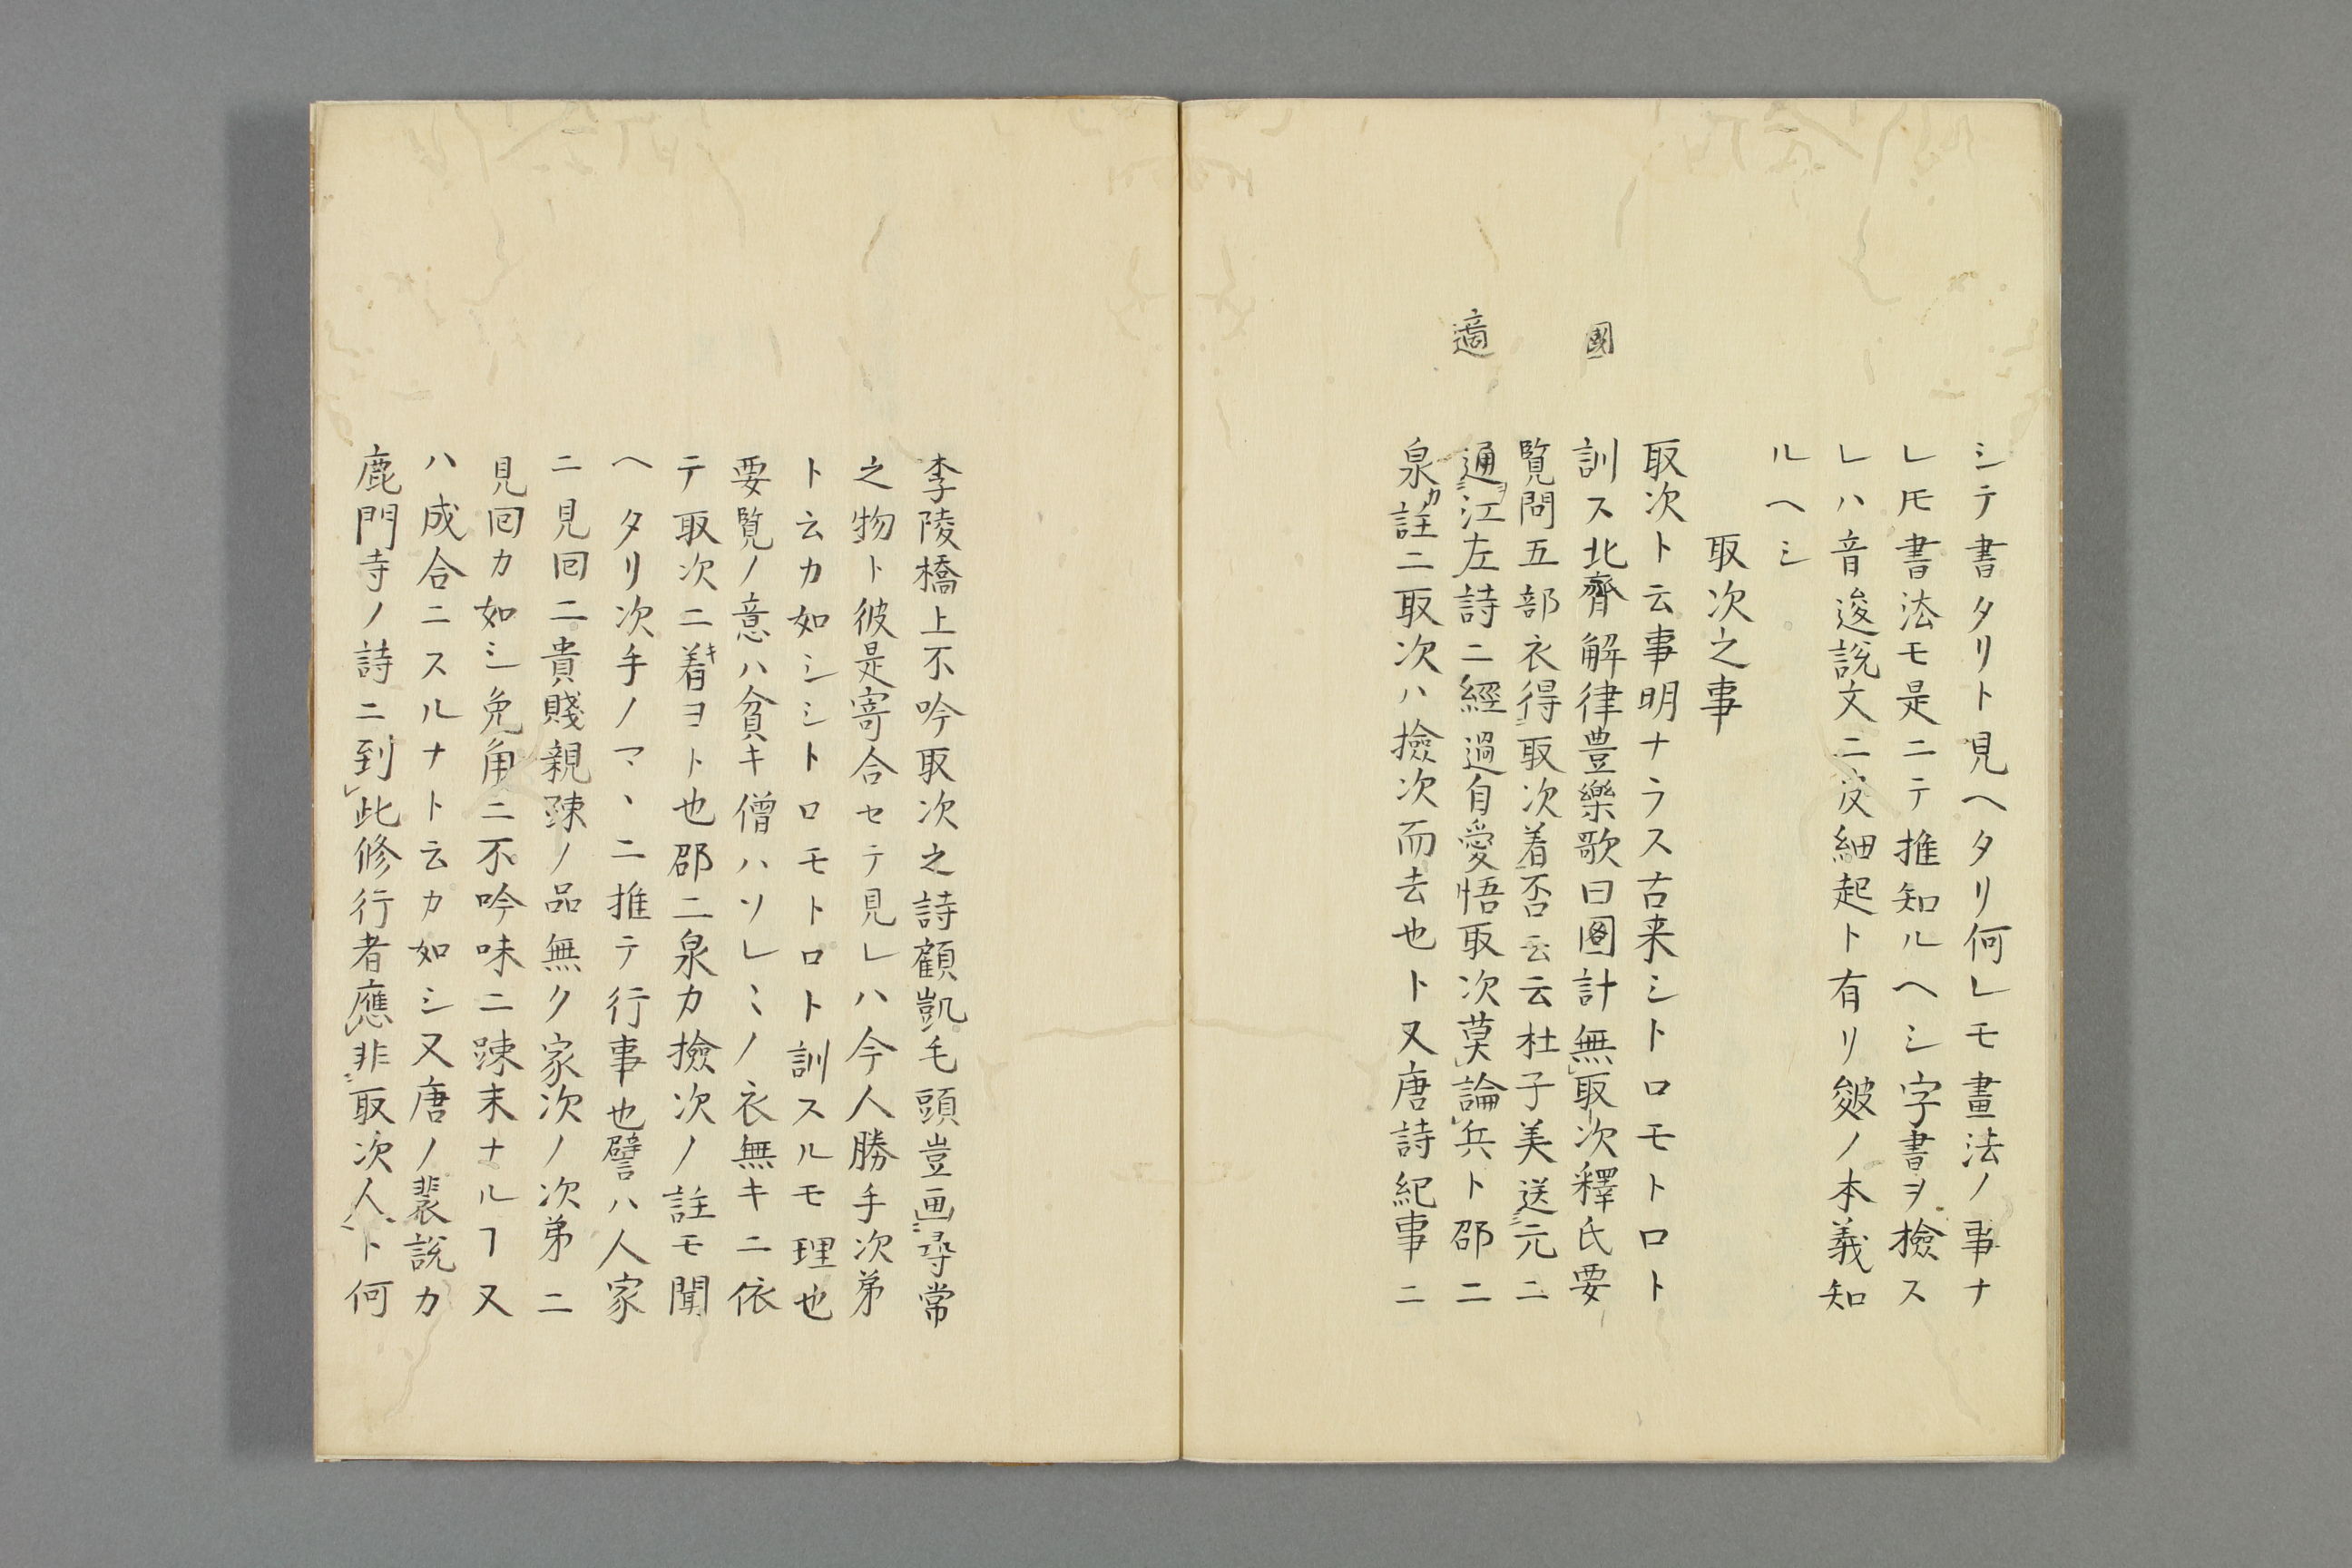 シテ書タリト見ヘタリ何レモ畫法ノ事ナ
レ𪜈書法モ是ニテ推知ルヘシ字書ヲ檢ス
レハ音逡說文ニ皮細起ト有リ皴ノ本義知
ルヘシ
取次之事
取次ト云事明ナラス古来シトロモトロト
國
訓ス北齊解律豊樂歌曰國計無㆑取次釋氏要
覧問五部衣得取次着否云云杜子美送元二
適
通江左詩ニ經過自愛悟取次莫論兵ト邵二
泉カ註ニ取次ハ撿次而去也ト又唐詩紀事ニ
李陵橋上不吟取次之詩顧凱毛頭豈画尋常
之物ト彼是寄合セテ見レハ今人勝手次弟
ト云カ如シシトロモトロト訓スルモ理也
要覧ノ意ハ貧キ僧ハソレ〻ノ衣無キニ依
テ取次ニ着キヨト也邵二泉カ撿次ノ註モ聞
ヘタリ次手ノマヽニ推テ行事也譬ハ人家
ニ見囘ニ貴賤親踈ノ品無ク家次ノ次弟ニ
見囘カ如シ免角ニ不吟味ニ踈末ナルヿ又
ハ成合ニスルナト云カ如シ又唐ノ裴說カ
鹿門寺ノ詩ニ到此修行者應非取次人ト何